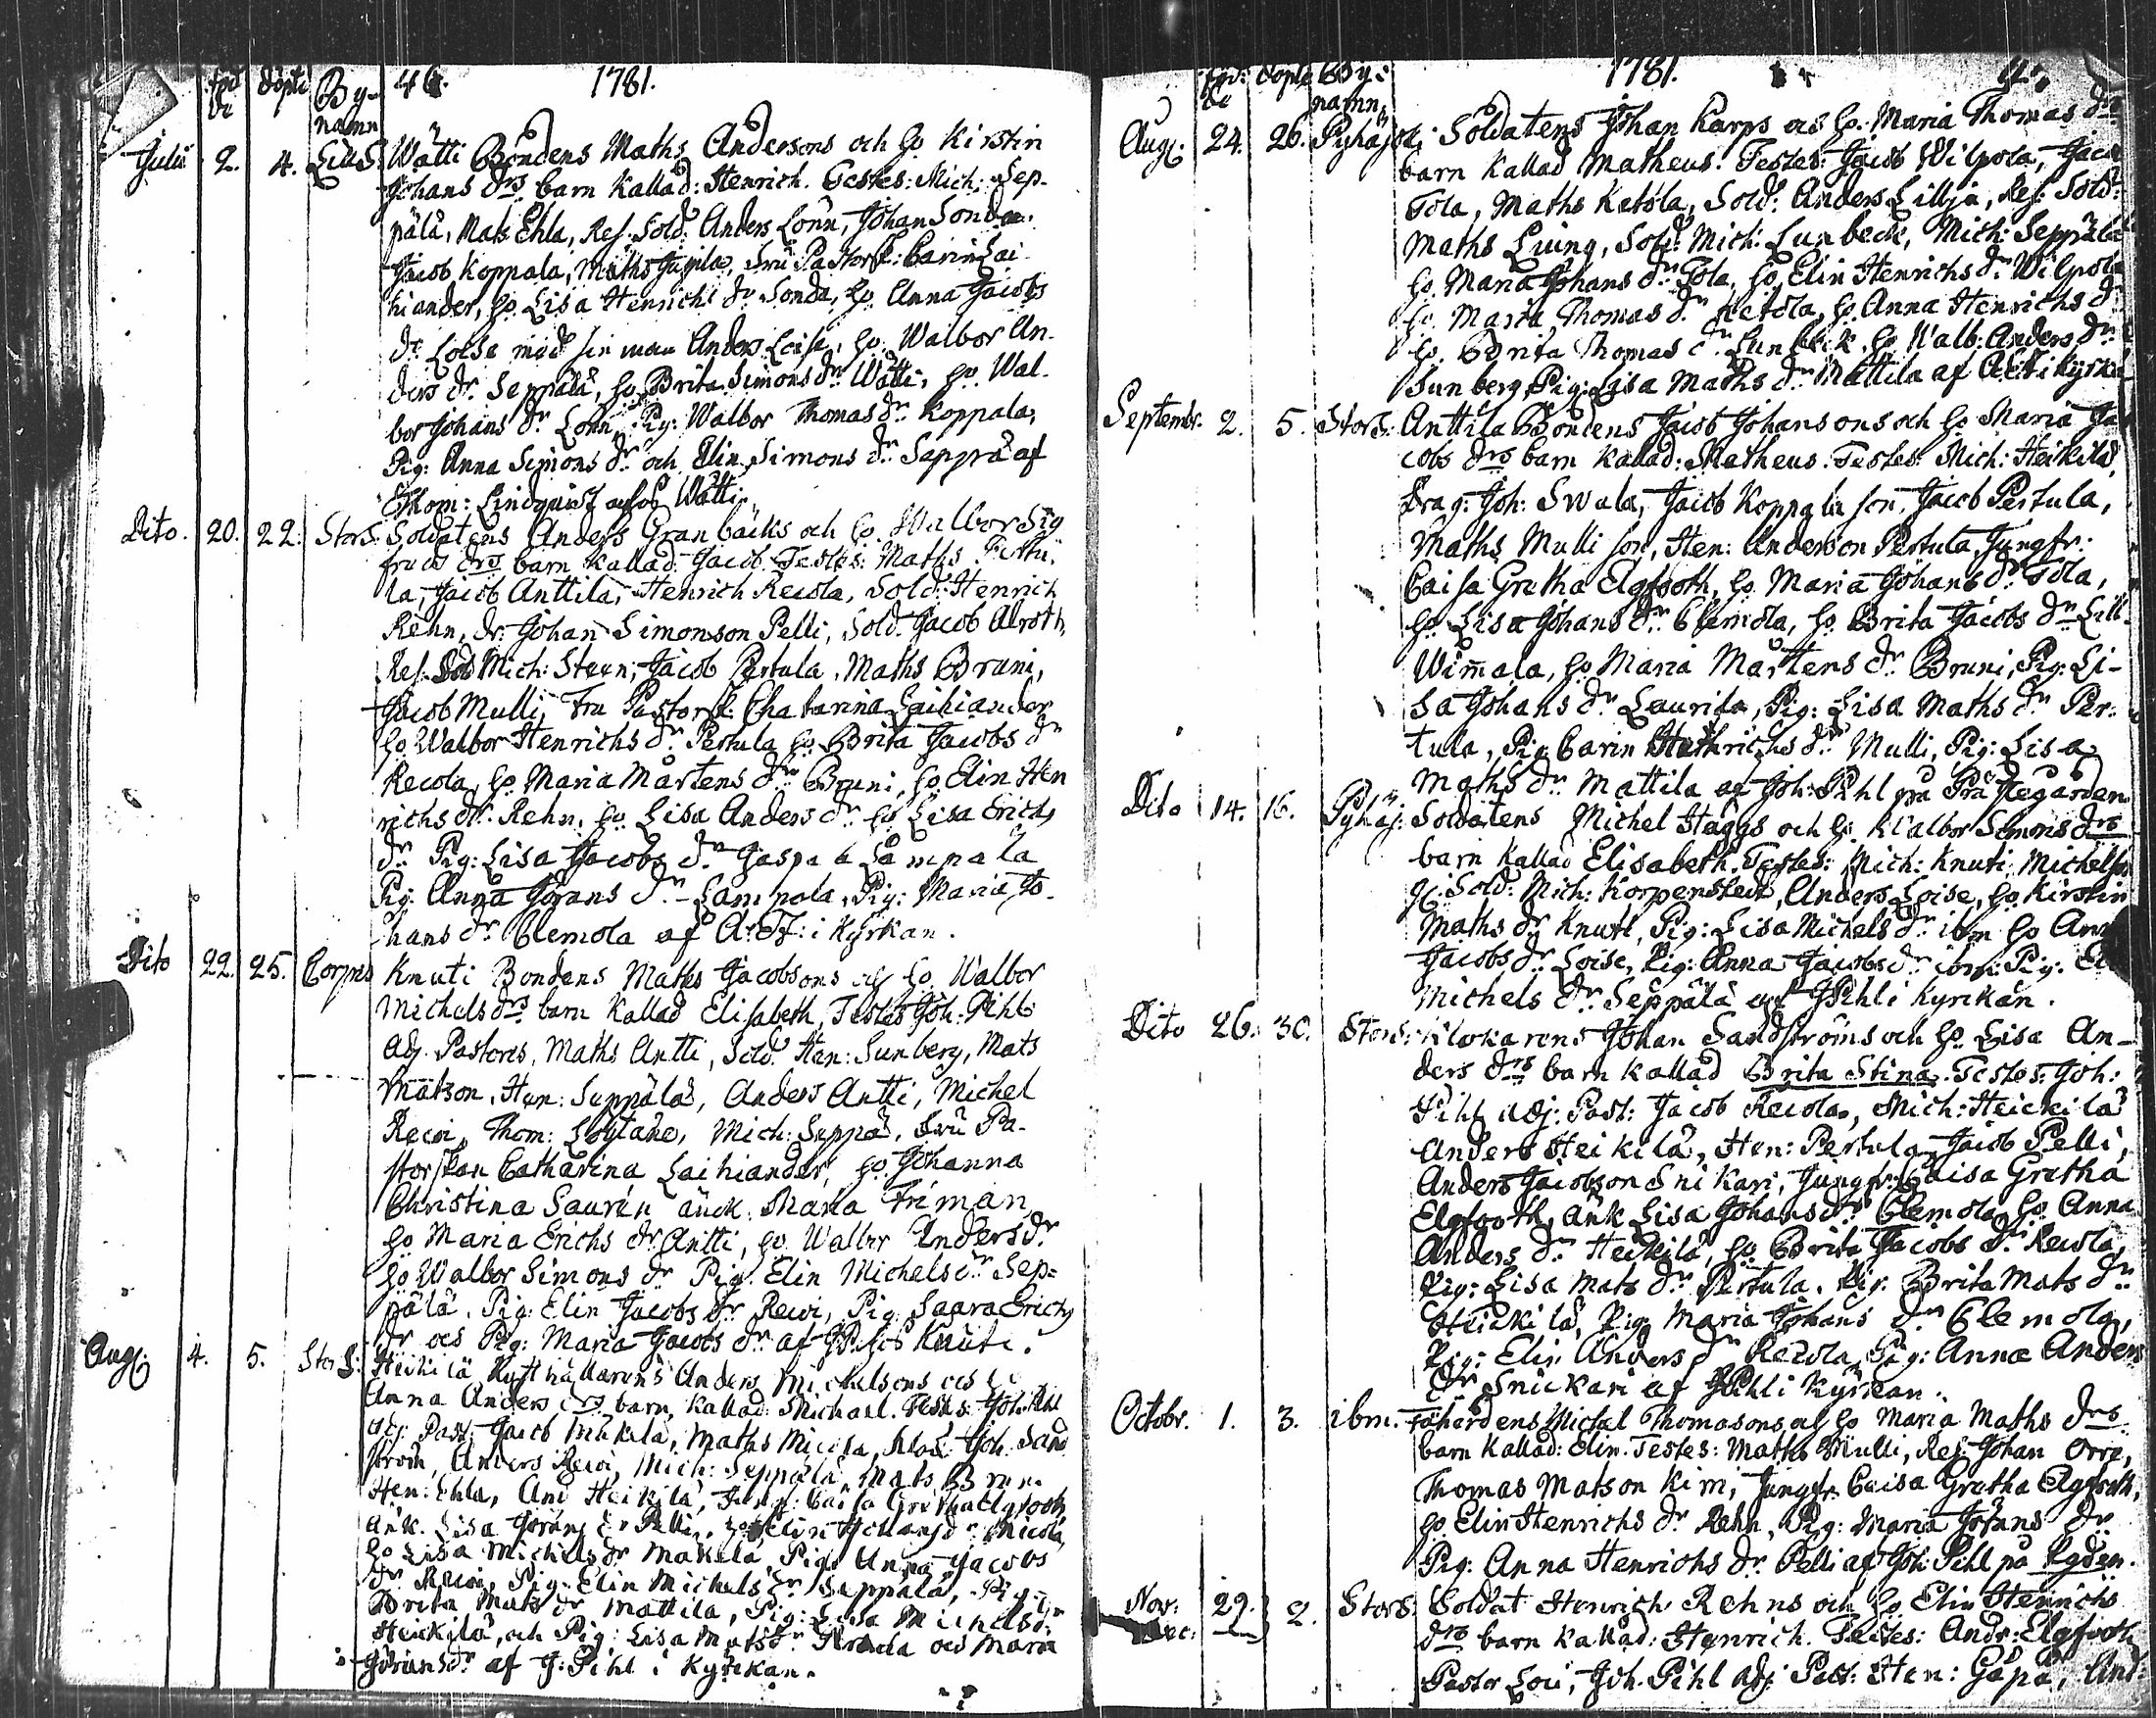 föd de döpte By-namn 46. 1781.
Julii 2. 4. LillS. Wätti Bondens Maths Andersons och H. Kirstin
Johans drs barn kallad: Henrich. Testes: Mich: Sep-
pälä, Mats Ehla, Res. Sold. Anders Lönn, Johan Sonda.
Jacob Koppala, Maths Jupila, Fru Pastorsk: Carin Lai-
hiander, H. Lisa Henrichs dr Sonda, H. Anna Jacobs
dr Loise med sin man Anders Loise, H. Walbor An-
ders dr Seppälä, H. Brita Simons dr Wätti, H. Wal-
bor Johans dr Lönn, Pig: Walbor Thomas dr Koppala,
Pig: Anna Simons dr och Elin Simons dr Seppä af
Thom: Lindquist Wätti
Dito. 20. 22. StorS. Soldatens Anders Granbäcks och H. Walbor Sig
freds drs barn kallad: Jacob. Testes: Maths Pertu-
la, Jacob Anttila, Henrich Recola, Sold: Henrich
Rehn, dr: Johan Simonson Pelli, Sold. Jacob Alroth,
Res. Sold Mich: Steen, Jacob Pertula, Maths Bruni,
Jacob Mulli, Fru Pastorsk: Chatarina Laihiander
H. Walbor Henrichs dr Pertula H. Brita Jacobs dr
Recola, H. Maria Mårtens dr Bruni, H. Elin Hen
richs dr Rehn, H. Lisa Anders dr H. Lisa Erichs
dr Pig: Lisa Jacobs dr Lampala
Pig: Anna Jörans dr Lampola, Pig: Maria Jo-
hans dr Clemola af A: i Kyrkan.
Dito 22. 25. Corpis Knuti Bondens Maths Jacobsons och H. Walbor
Michels drs barn kallad Elisabeth, Testes Joh: Pihl
adj. Pastores, Maths Antti, Sold. Hen: Sunberg, Mats
Matson, Hen: Seppälä, Anders Antti, Michel
Recoi, Thom: Löytäne, Mich: Seppä, Fru Pa-
storskan Catharina Laihiander, H. Johanna
Christina Saurén änck. Maria Friman
H. Maria Erichs dr Antti, H. Walbor Anders dr
H. Walbor Simons dr Pig. Elin Michels dr Sep-
pälä. Pig: Elin Jacobs dr Recoi, Pig Saara Erichs
dr och Pig: Maria Jacobs dr af Knuti.
Aug: 4. 5. StorS: Heickilä Rusthållarens Anders Michelsons och H
Anna Anders drs barn, kallad: Michael. Testes: Joh. Pihl
adj. Past: Jacob Mäkilä, Maths Micola, Joh. Sand
ström, Anders Recoi, Mich: Seppälä, Mats
Hen: Ehla, And Heikilä, Jungf: Caisa Gretha Elgfooth
Änk. Lisa Jörans dr Pelli, H. Elin Johans dr Micola
H. Lisa Michels dr Mäkelä, Pig. Anna Jacobs
dr Recoi, Pig: Elin Michels dr Seppälä, Pig:
Brita Mats dr Mattila, Pig: Lisa Michels dr
Heickilä, och Pig: Lisa Mats dr och Maria
Jörans dr af J: Pihl i Kyrkan.
föd: de döpte By: namn. 1781.
Aug: 24. 26. Pyhäjok: Soldatens Johan Karps och H. Maria Thomas drs
barn kallad Matheus. Testes: Jacob Wilpola, Jacob
Tola, Maths Ketola, Sold: Anders Lillja, Res: Sold:
Maths Luing, Sold: Mich: Lunbeck, Mich: Seppälä
H. Maria Johans dr Tola, H. Elin Henrichs dr Wilpola
H. Maria Thomas dr Ketola, H. Anna Henrichs dr
H. Brita Thomas dr Lunbeck, H. Walb: Anders dr
Sunberg, Pig: Lisa Maths dr Mattila af i Kyrkan
Septembr. 2. 5. StorS: Anttila Bondens Jacob Johansons och H. Maria Ja
cobs drs barn kallad: Matheus. Testes: Mich: Heikilä,
Drag: Joh: Swala, Jacob Koppala son, Jacob Pertula,
Maths Mulli son, Hen: Anderson Pertula, Jungfr:
Caisa Gretha Elgfooth, H. Maria Johans dr Tola,
H. Lisa Johans dr Clemola, H. Brita Jacobs dr Lill-
Wimala, H. Maria Mårtens dr Bruni, Pig: Li-
sa Johans dr Laurila, Pig: Lisa Maths dr Per-
tula, Pig Carin Henrichs dr Mulli, Pig: Lisa
Maths dr Mattila af Joh: Pihl på Prästegården
Dito 14. 16. Pyhäj: Soldatens Michel Häggs och H. Walbor Simons drs
barn kallad Elisabeth. Testes: Mich: Knuti Michelson
Sold: Mich: Korpenstedt, Anders Loise, H. Kirstin
Maths dr Knuti, Pig: Lisa Michels dr ibm H. Anna
Jacobs dr Loise, Pig: Anna Jacobs dr ibm: Pig. El
Michels dr Seppälä af J Pihl i Kyrckan.
Dito 26. 30. StorS: Klockarens Johan Sandströms och H. Lisa An-
ders drs barn kallad Brita Stina. Testes: Joh:
Pihl adj: Past: Jacob Recola, Mich: Heickilä
Anders Heikilä, Hen: Pertula, Jacob Pelli,
Anders Jacobson Snikari, Jungfr: Caisa Gretha
Elgfooth, änk Lisa Johans dr Clemola, H. Anna
Anders dr Heickilä, H. Brita Jacobs dr Recola,
Pig: Lisa Mats dr Pertula, Pig. Brita Mats dr
Heickilä, Pig: Maria Johans dr Clemola,
Pig: Elin Anders dr Recola, Pig: Anna Anders
dr Snickari af J Pihl i Kyrkan.
Octobr. 1. 3. ibm. Michel Thomasons och H. Maria Maths drs
barn kallad: Elin. Testes: Maths Mulli, Res: Johan Orre,
Thomas Matson Kim, Jungfr. Caisa Gretha Elgfooth,
H. Elin Henrichs dr Rehn, Pig: Maria Jörans dr
Pig: Anna Henrichs dr Pelli af Joh: Pihl på
Nov: 29. 2. StorS Soldat Henrich Rehns och H. Elin Henrichs
Dec: drs barn kallad: Henrich. Testes: Andr: Elgfooth
Pastor Loci, Joh. Pihl adj: Past: Hen: Gåpå, And: